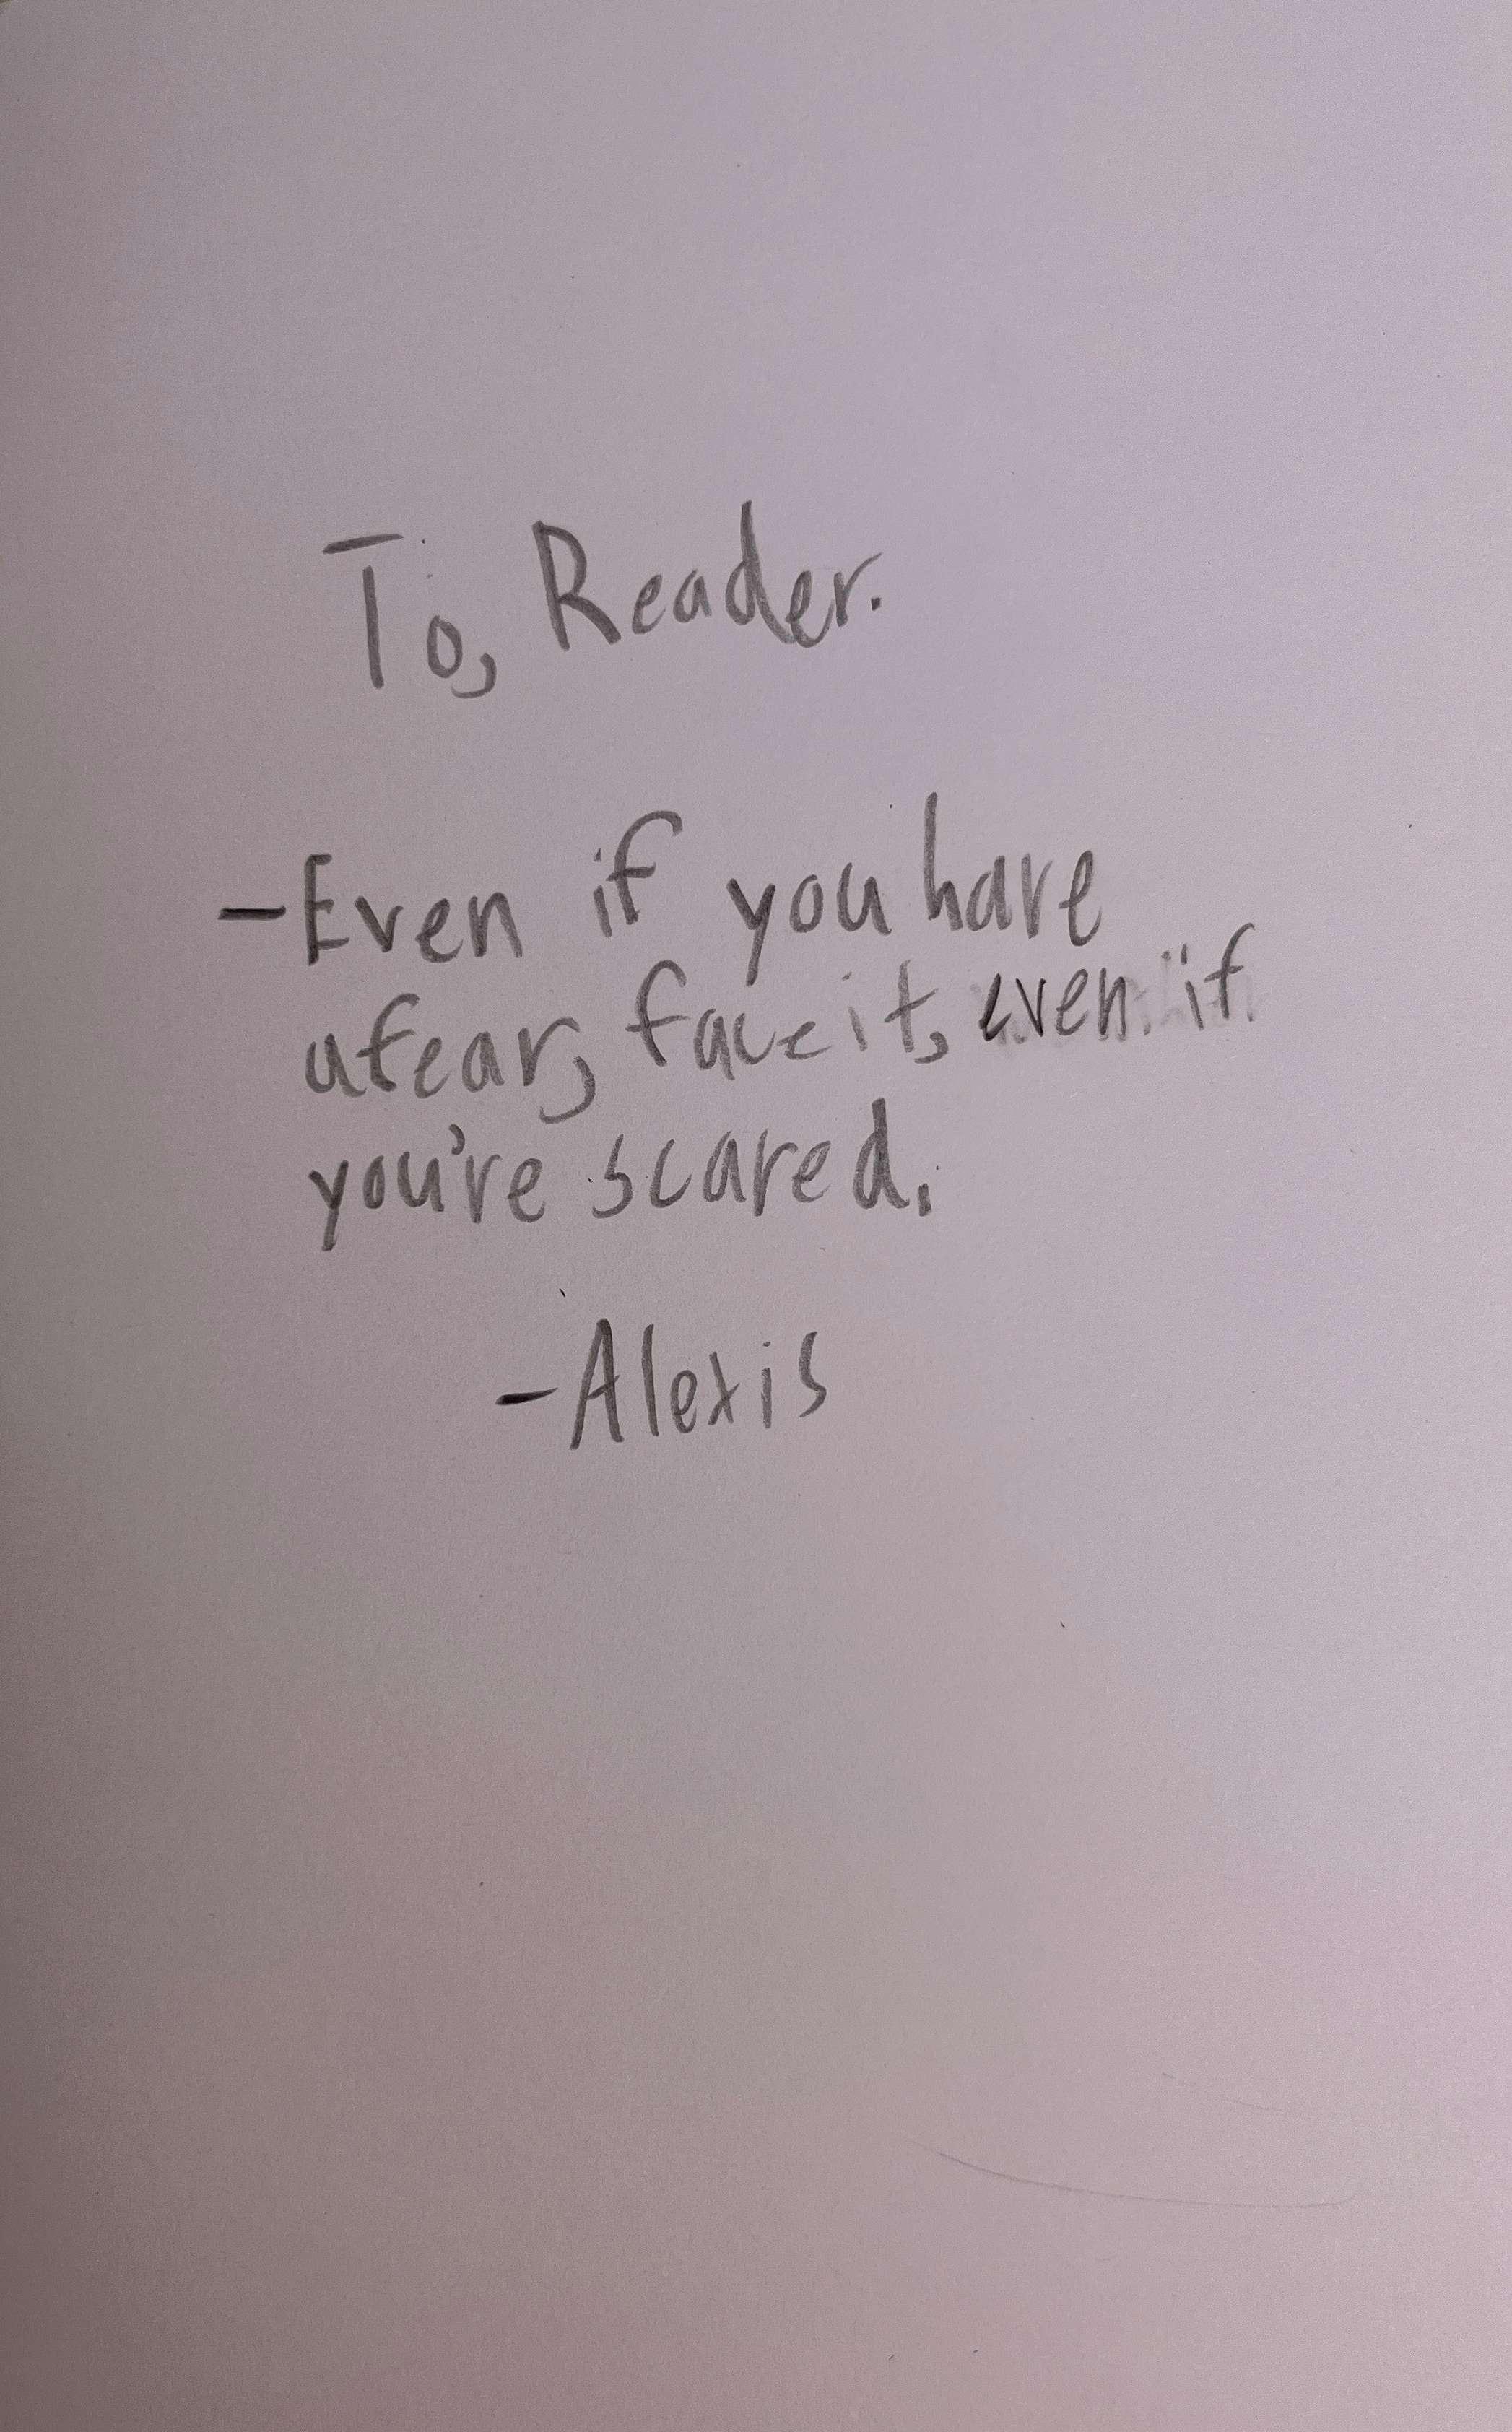 To, Reader.
-Even if you have
a fear, face it, even if
you're scared.
-Alexis